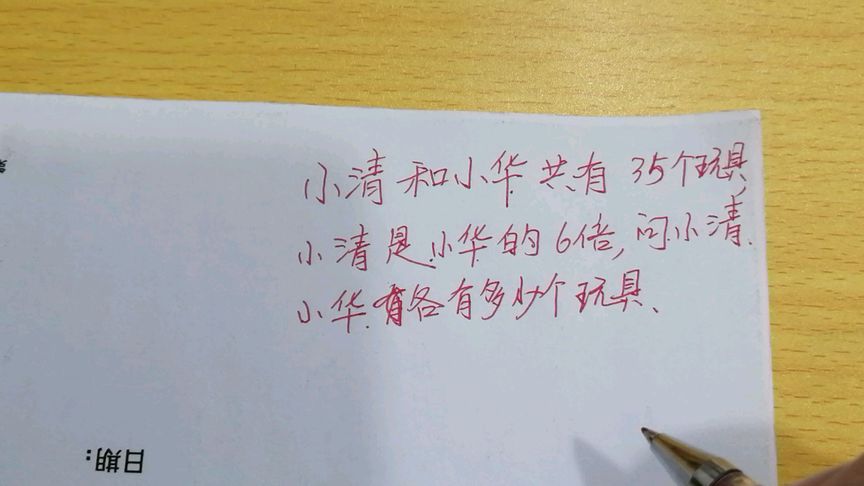 小清和小华共有35个玩具,
小清是小华的6倍,问小清.
小华各有多少个玩具、
日期: